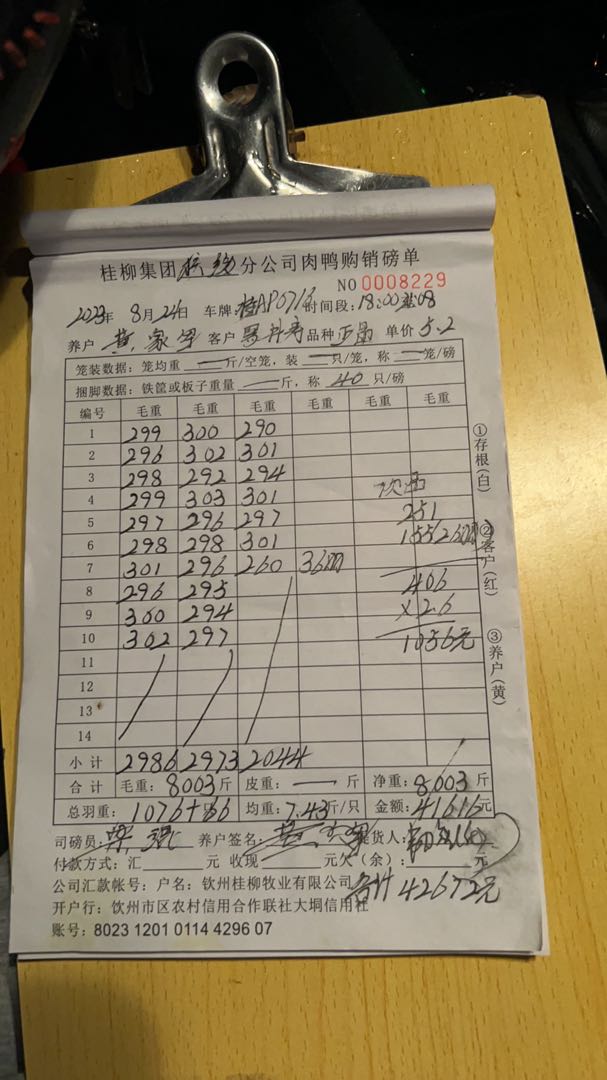 桂柳集团 分公司肉鸭购销磅单
NO 0008229
2023年 8月24日 车牌:桂AP0716 时间段:18:00
养户 黄家军 客户 品种 正品 单价 5.2
笼装数据:笼均重 一 斤/空笼,装 一 只/笼,称 一 笼/磅
捆脚数据:铁筐或板子重量 一 斤,称 40 只/磅
编号 毛重 毛重 毛重 毛重 毛重 毛重
1 299 300 290
2 296 302 301
3 298 292 294
4 299 303 301 次
5 297 296 297 251
6 298 298 301 155/26
7 301 296 260 36
406
8 296 295
9 300 294 ×2.6
10 302 297 1056元
11
12
13
14
小计 2986 2973 2044
合计 毛重:8003斤 皮重:一 斤 净重:8003斤
总羽重:1076+ 均重:7.43斤/只 金额:41616元
司磅员: 养户签名:黄家军 提货人:
付款方式:汇 元 收现 元欠(余): 元
公司汇款帐号:户名:钦州桂柳牧业有限公司 合计42672元
开户行:钦州市区农村信用合作联社大垌信用社
账号:8023 1201 0114 4296 07
①存根(白)
②客户(红)
③养户(黄)